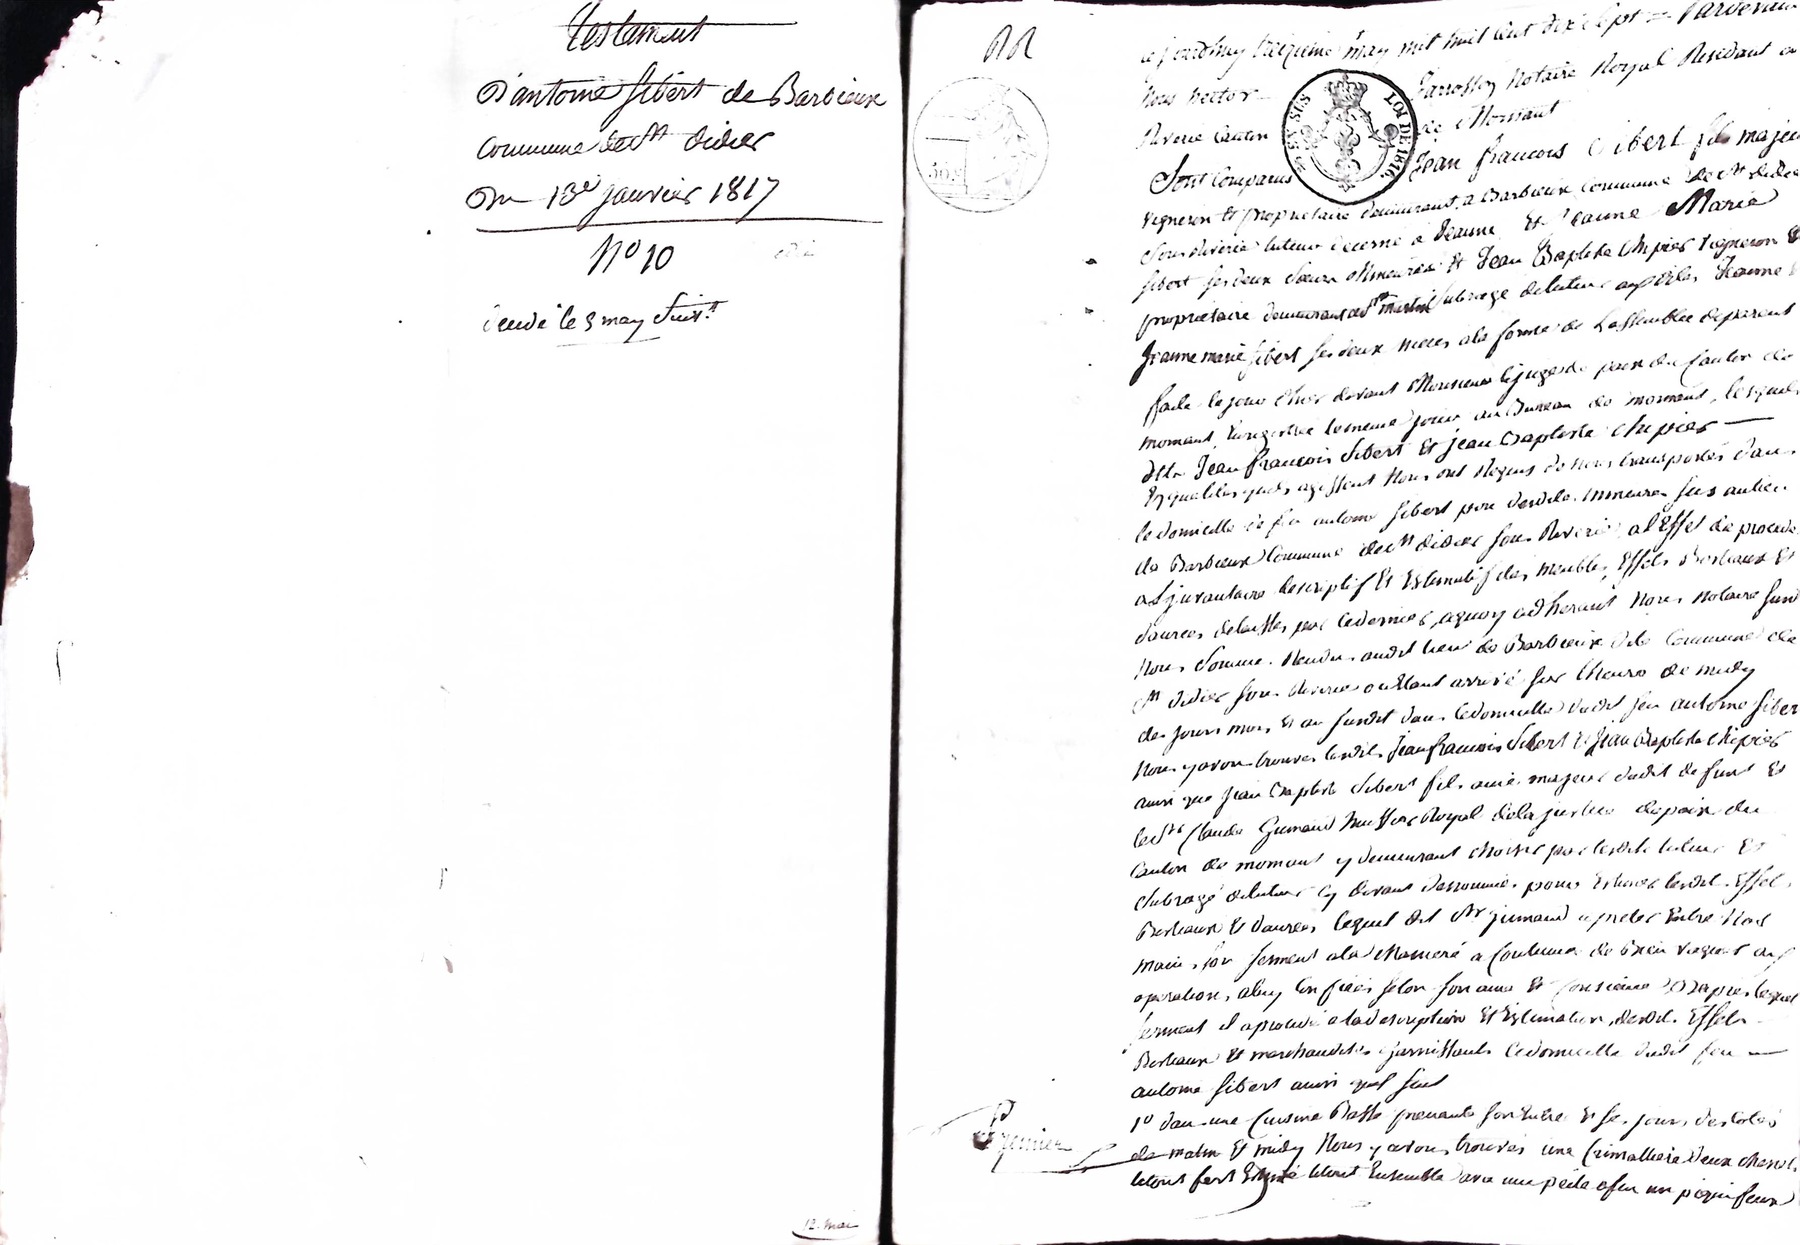 Testament
D'antoine Sibert de Barbieux
Commune de St didier
Du 13e Janvier 1817
No 10
décédé le 3 may suivt
12 mai
RR
ajourdhuy treizieme may mil huit cent dix sept = Pardevant
Nous hector Jarrosson Notaire Royal Residant a
Riverie Canton de Mornant
Sont Comparus Jean francois Sibert fils majeur
vigneron Et proprietaire demeurant a Barbieux Commune de St didier
Sous Riverie tuteur decerné a Jeanne Et Jeanne Marie
Sibert ses deux Soeurs Mineures Et Jean Baptiste Chipier vigneron Et
proprietaire demeurant a St martin Subrogé detuteur auxdites Jeanne Et
Jeanne marie Sibert ses deux nieces ala forme de Lassemblée deparent
faite le jour d'hier devant Monsieur le juge de paix du Canton de
mornant Enregistrée le meme jour au Bureau de mornant, lesquels
dits Jean francois Sibert Et Jean Baptiste Chipier
Esqualites quils agissent Nous ont Requis de Nous transporter dans
le domicille de feu antoine Sibert pere desdites mineures sis au lieu
de Barbieux Commune de St didier Sous Riverie a l'Effet de proceder
a Linvantaire descriptif Et Estimatif des meubles Effets Bestiaux Et
danrées delaissés par ce dernier, aquoy adherant Nous Notaire susdit
Nous Somme Rendu audit lieu de Barbieux dite Commune de
St didier Sous Riverie ou Etant arrivé sur l'heure de midy
des jours mois Et an susdit dans le domicille dudit feu antoine Siber
Nous y avons trouvés lesdits Jean francois Sibert Et Jean Baptiste Chipier
ainsi que Jean Baptiste Sibert fils ainé majeur dudit defunt Et
le Sr Claude Gumand huissier Royal de la justice depaix du
Canton de mornant y demeurant choisis par lesdits tuteur Et
Subrogé detuteur cy devant denommés pour Estimer lesdits Effets
Bestiaux Et danrées lequel dit Sr jumand a preter Entre Nos
mains son serment a la Maniere a Coutumee de Bien vaquer aux
operations aluy Confiées selon son ame Et Consience D'apres lequel
serment il a procedé a la description Et Estimation desdits Effets
Bestiaux Et marchandises garnissants le domicille dudit feu
antoine Sibert ainsi quil suit
Premier
1o dans une Cuisine Basse prenants son Entre Et ses jours des cotés
de matin Et midy Nous y avons trouvés une Crimalliere deux chenets
letout fert Estimé letout Ensemble avec une pele a feu un piquefeux